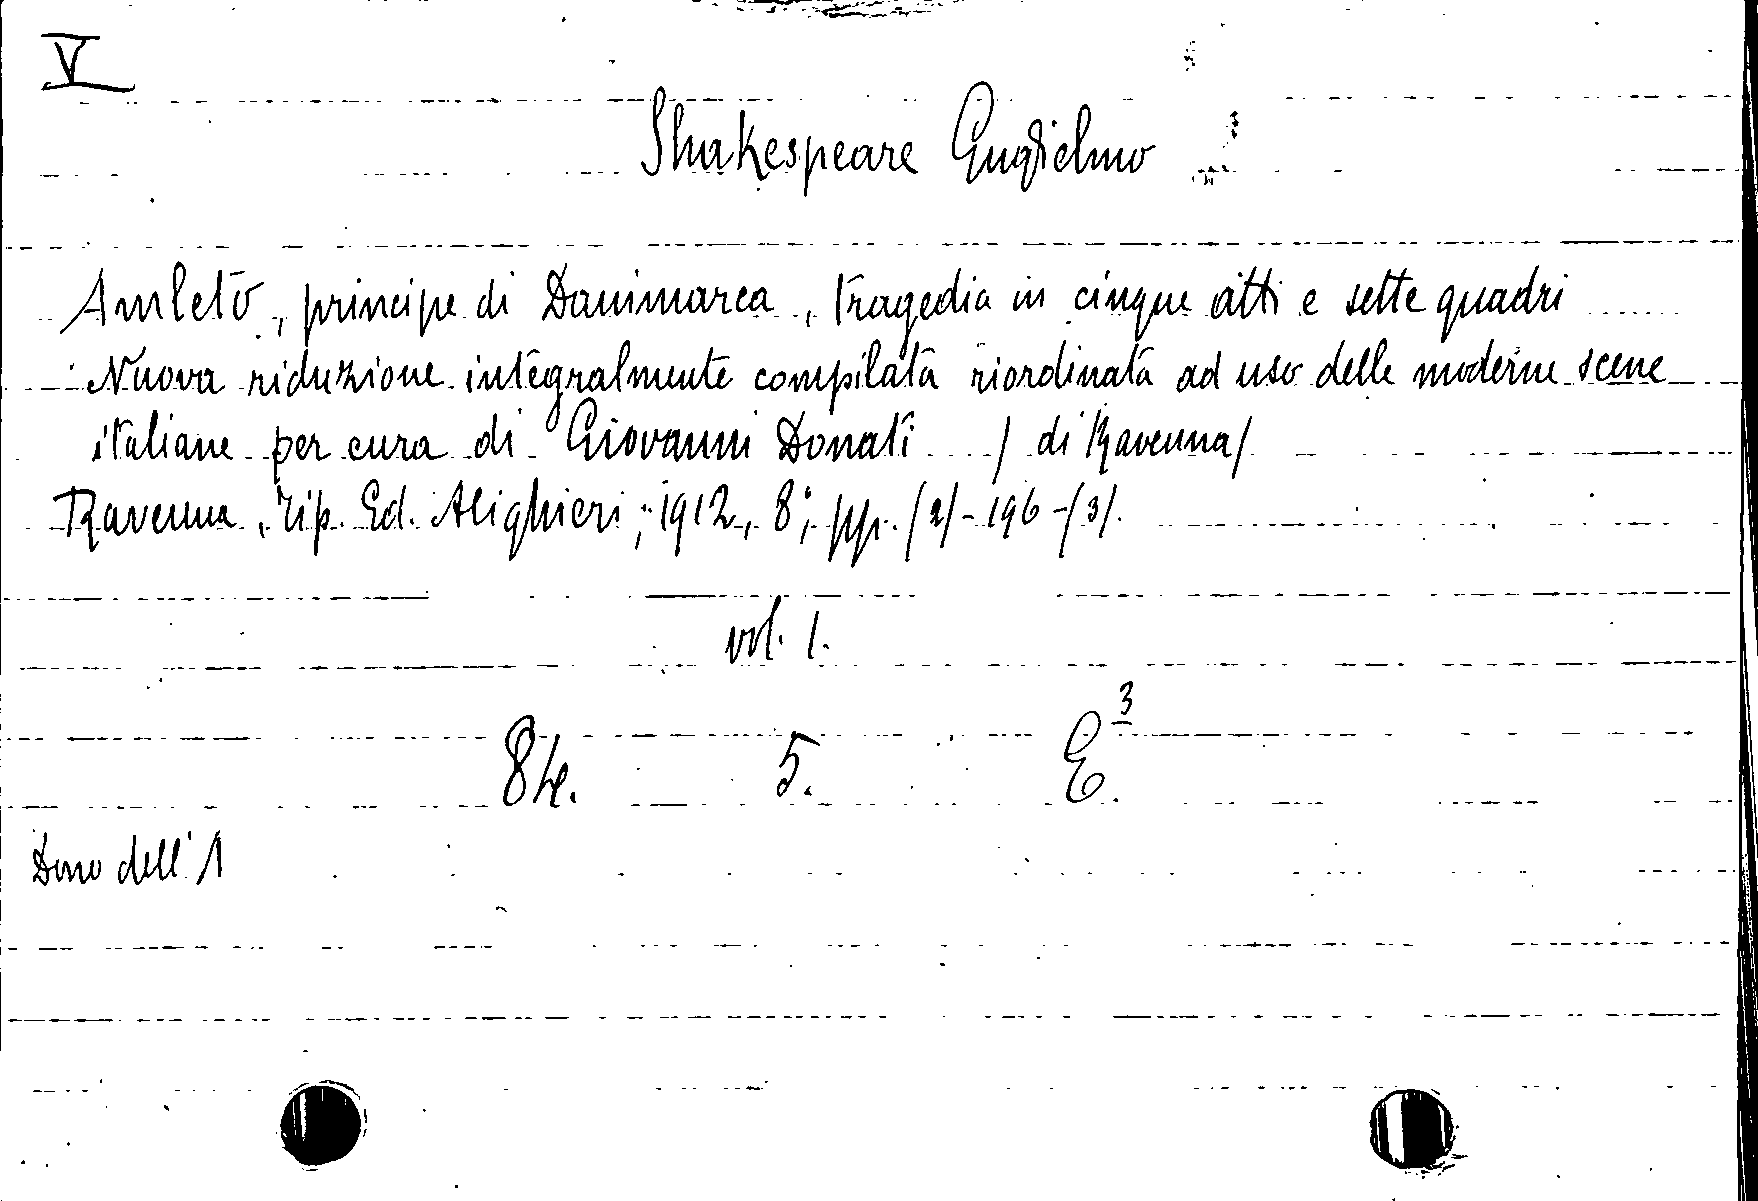 V
Shakespeare Guglielmo
Amleto, principe di Danimarca, tragedia in cinque atti e sette quadri
Nuova riduzione integralmente compilata riordinata ad uso delle moderne scene
italiane per cura di Giovanni Donati / di Ravenna /
Ravenna, Tip. Ed. Alighieri, 1912, 8°, pp. /2/-196-/3/.
vol. 1.
84. 5. E.³
Dono dell'A